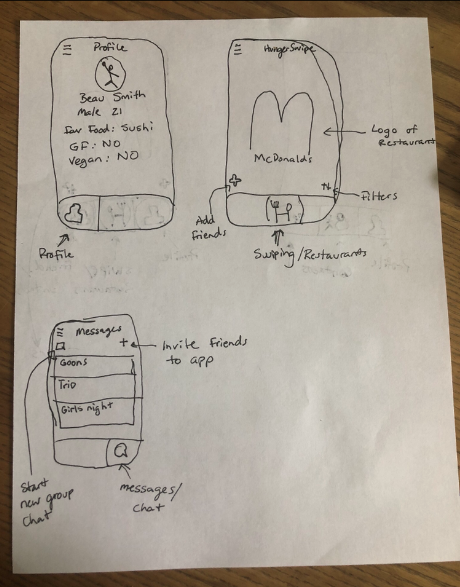 Profile
Beau Smith
Male 21
Fav Food: Sushi
GF: NO
Vegan: NO
Profile
HungerSwipe
McDonalds
Logo of
Restaurant
Filters
Add
friends
Swiping/Restaurants
Messages
Goons
Trio
Girls night
Invite friends
to app
Start
new group
chat
messages/
chat